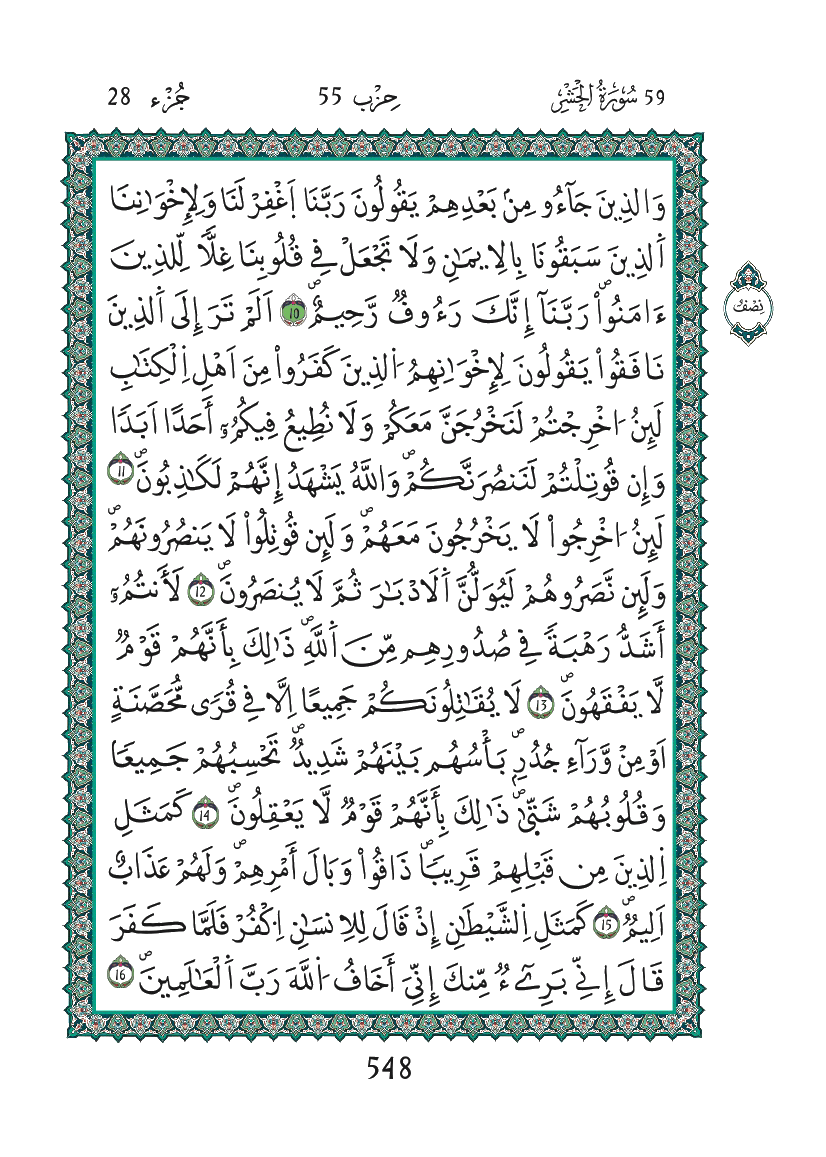 59 سُورَةُ الْحَشْرِ
حِزْب 55
جُزْء 28
وَالذِينَ جَآءُو مِنۢ بَعْدِهِمْ يَقُولُونَ رَبَّنَا اَ۪غْفِرْ لَنَا وَلِإِخْوَٰنِنَا
اَ۬لذِينَ سَبَقُونَا بِالِايمَٰنِ وَلَا تَجْعَلْ فِے قُلُوبِنَا غِلّٗا لِّلذِينَ
ءَامَنُواْۖ رَبَّنَآ إِنَّكَ رَءُوفٞ رَّحِيمٌۖ 10 اَلَمْ تَرَ إِلَى اَ۬لذِينَ
نَافَقُواْ يَقُولُونَ لِإِخْوَٰنِهِمُ اُ۬لذِينَ كَفَرُواْ مِنَ اَهْلِ اِ۬لْكِتَٰبِ
لَئِنُ ا۟خْرِجْتُمْ لَنَخْرُجَنَّ مَعَكُمْ وَلَا نُطِيعُ فِيكُمُۥٓ أَحَداً اَبَداٗ
وَإِن قُوتِلْتُمْ لَنَنصُرَنَّكُمْۖ وَاللَّهُ يَشْهَدُ إِنَّهُمْ لَكَٰذِبُونَۖ 11
لَئِنُ ا۟خْرِجُواْ لَا يَخْرُجُونَ مَعَهُمْۖ وَلَئِن قُوتِلُواْ لَا يَنصُرُونَهُمْۖ
وَلَئِن نَّصَرُوهُمْ لَيُوَلُّنَّ اَ۬لَادْبَٰرَ ثُمَّ لَا يُنصَرُونَۖ 12 لَأَنتُمُۥٓ
أَشَدُّ رَهْبَةٗ فِے صُدُورِهِم مِّنَ اَ۬للَّهِۖ ذَٰلِكَ بِأَنَّهُمْ قَوْمٞ
لَّا يَفْقَهُونَۖ 13 لَا يُقَٰتِلُونَكُمْ جَمِيعاً اِلَّا فِے قُرىٗ مُّحَصَّنَةٍ
اَوْ مِنْ وَّرَآءِ جُدُرِۢۖ بَأْسُهُم بَيْنَهُمْ شَدِيدٞۖ تَحْسِبُهُمْ جَمِيعاٗ
وَقُلُوبُهُمْ شَتّ۪ىٰۖ ذَٰلِكَ بِأَنَّهُمْ قَوْمٞ لَّا يَعْقِلُونَۖ 14 كَمَثَلِ
اِ۬لذِينَ مِن قَبْلِهِمْ قَرِيباٗۖ ذَاقُواْ وَبَالَ أَمْرِهِمْۖ وَلَهُمْ عَذَابٌ
اَلِيمٞۖ 15 كَمَثَلِ اِ۬لشَّيْطَٰنِ إِذْ قَالَ لِلِانسَٰنِ اِ۟كْفُرْ فَلَمَّا كَفَرَ
قَالَ إِنِّے بَرِےٓءٞ مِّنكَ إِنِّيَ أَخَافُ اُ۬للَّهَ رَبَّ اَ۬لْعَٰلَمِينَۖ 16
نِصْف
548